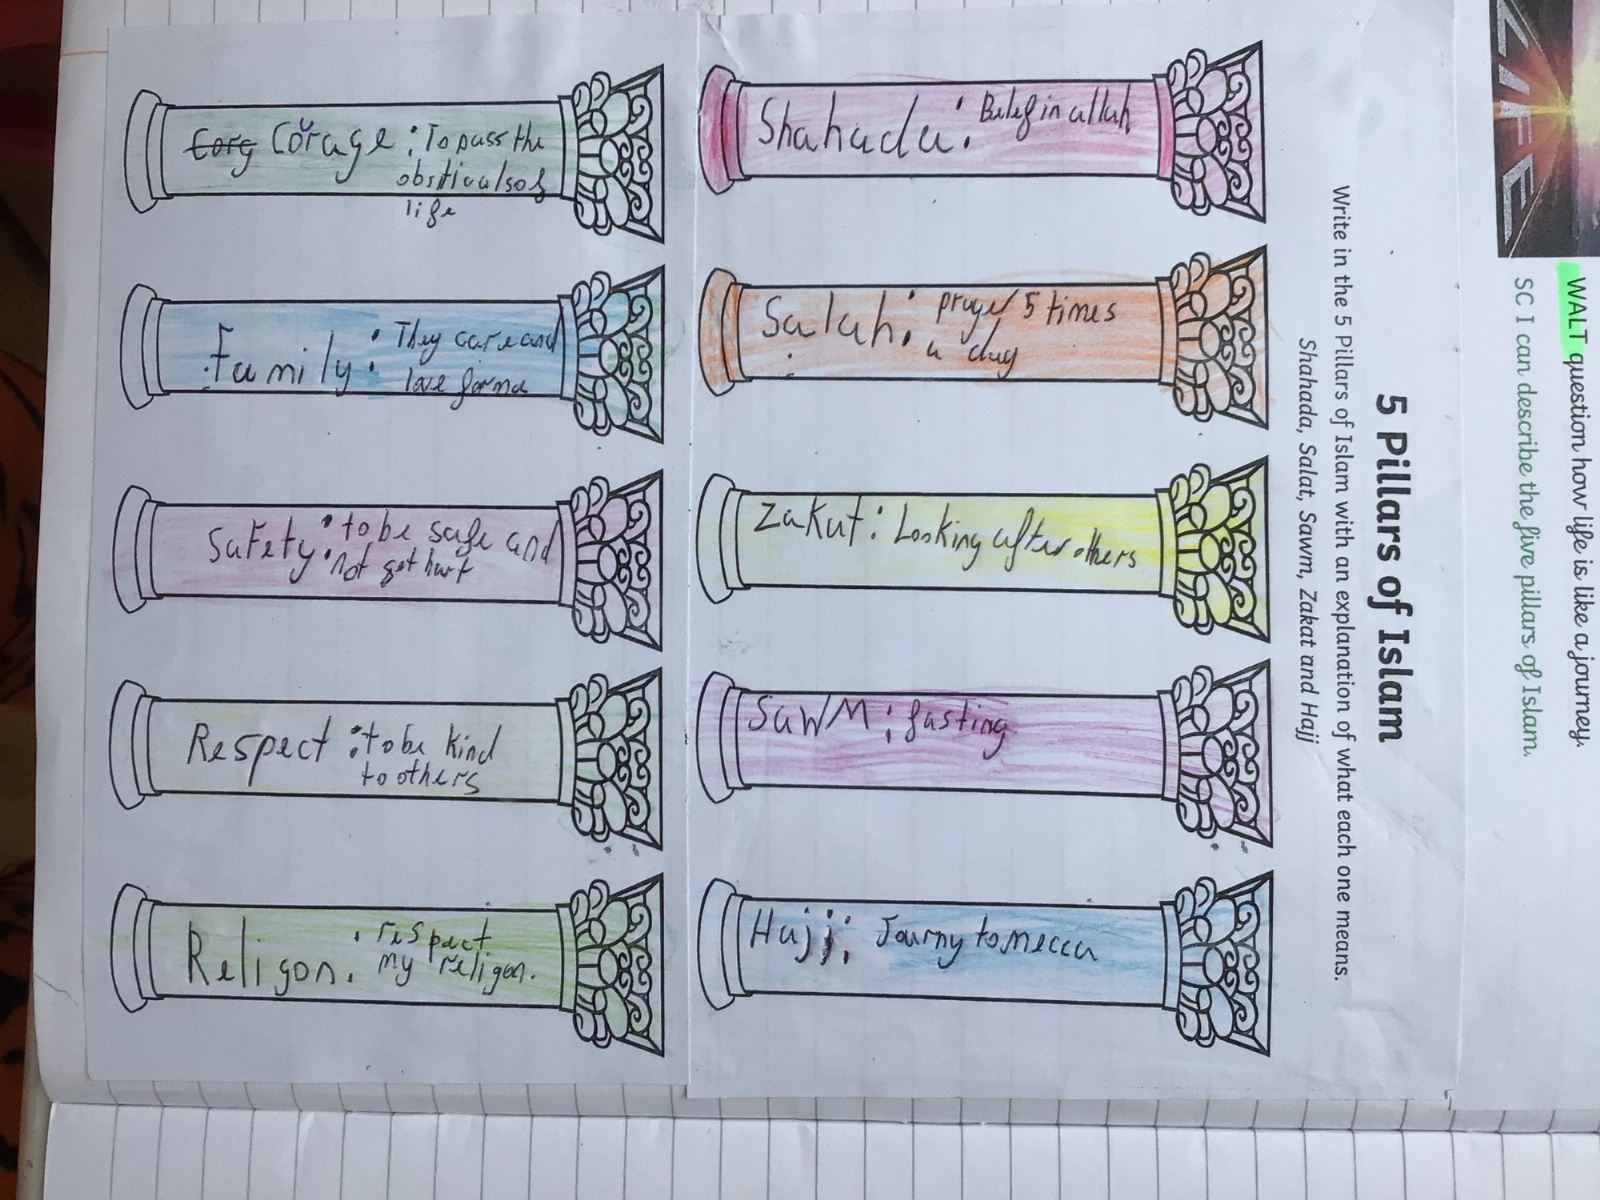 LIFE
WALT question how life is like a journey.
SC I can describe the five pillars of Islam.
5 Pillars of Islam
Write in the 5 Pillars of Islam with an explanation of what each one means.
Shahada, Salat, Sawm, Zakat and Hajj
Shahada: Belef in allah
Salah: prayer 5 times
a day
Zakat: Looking after others
SaWM: fasting
Hajj: Journy to mecca
Corg Courage: To pass the
obsticals of
life
Family: They care and
love for me
Safety: to be safe and
not get hurt
Respect: to be kind
to others
Religon: respect
my religon.